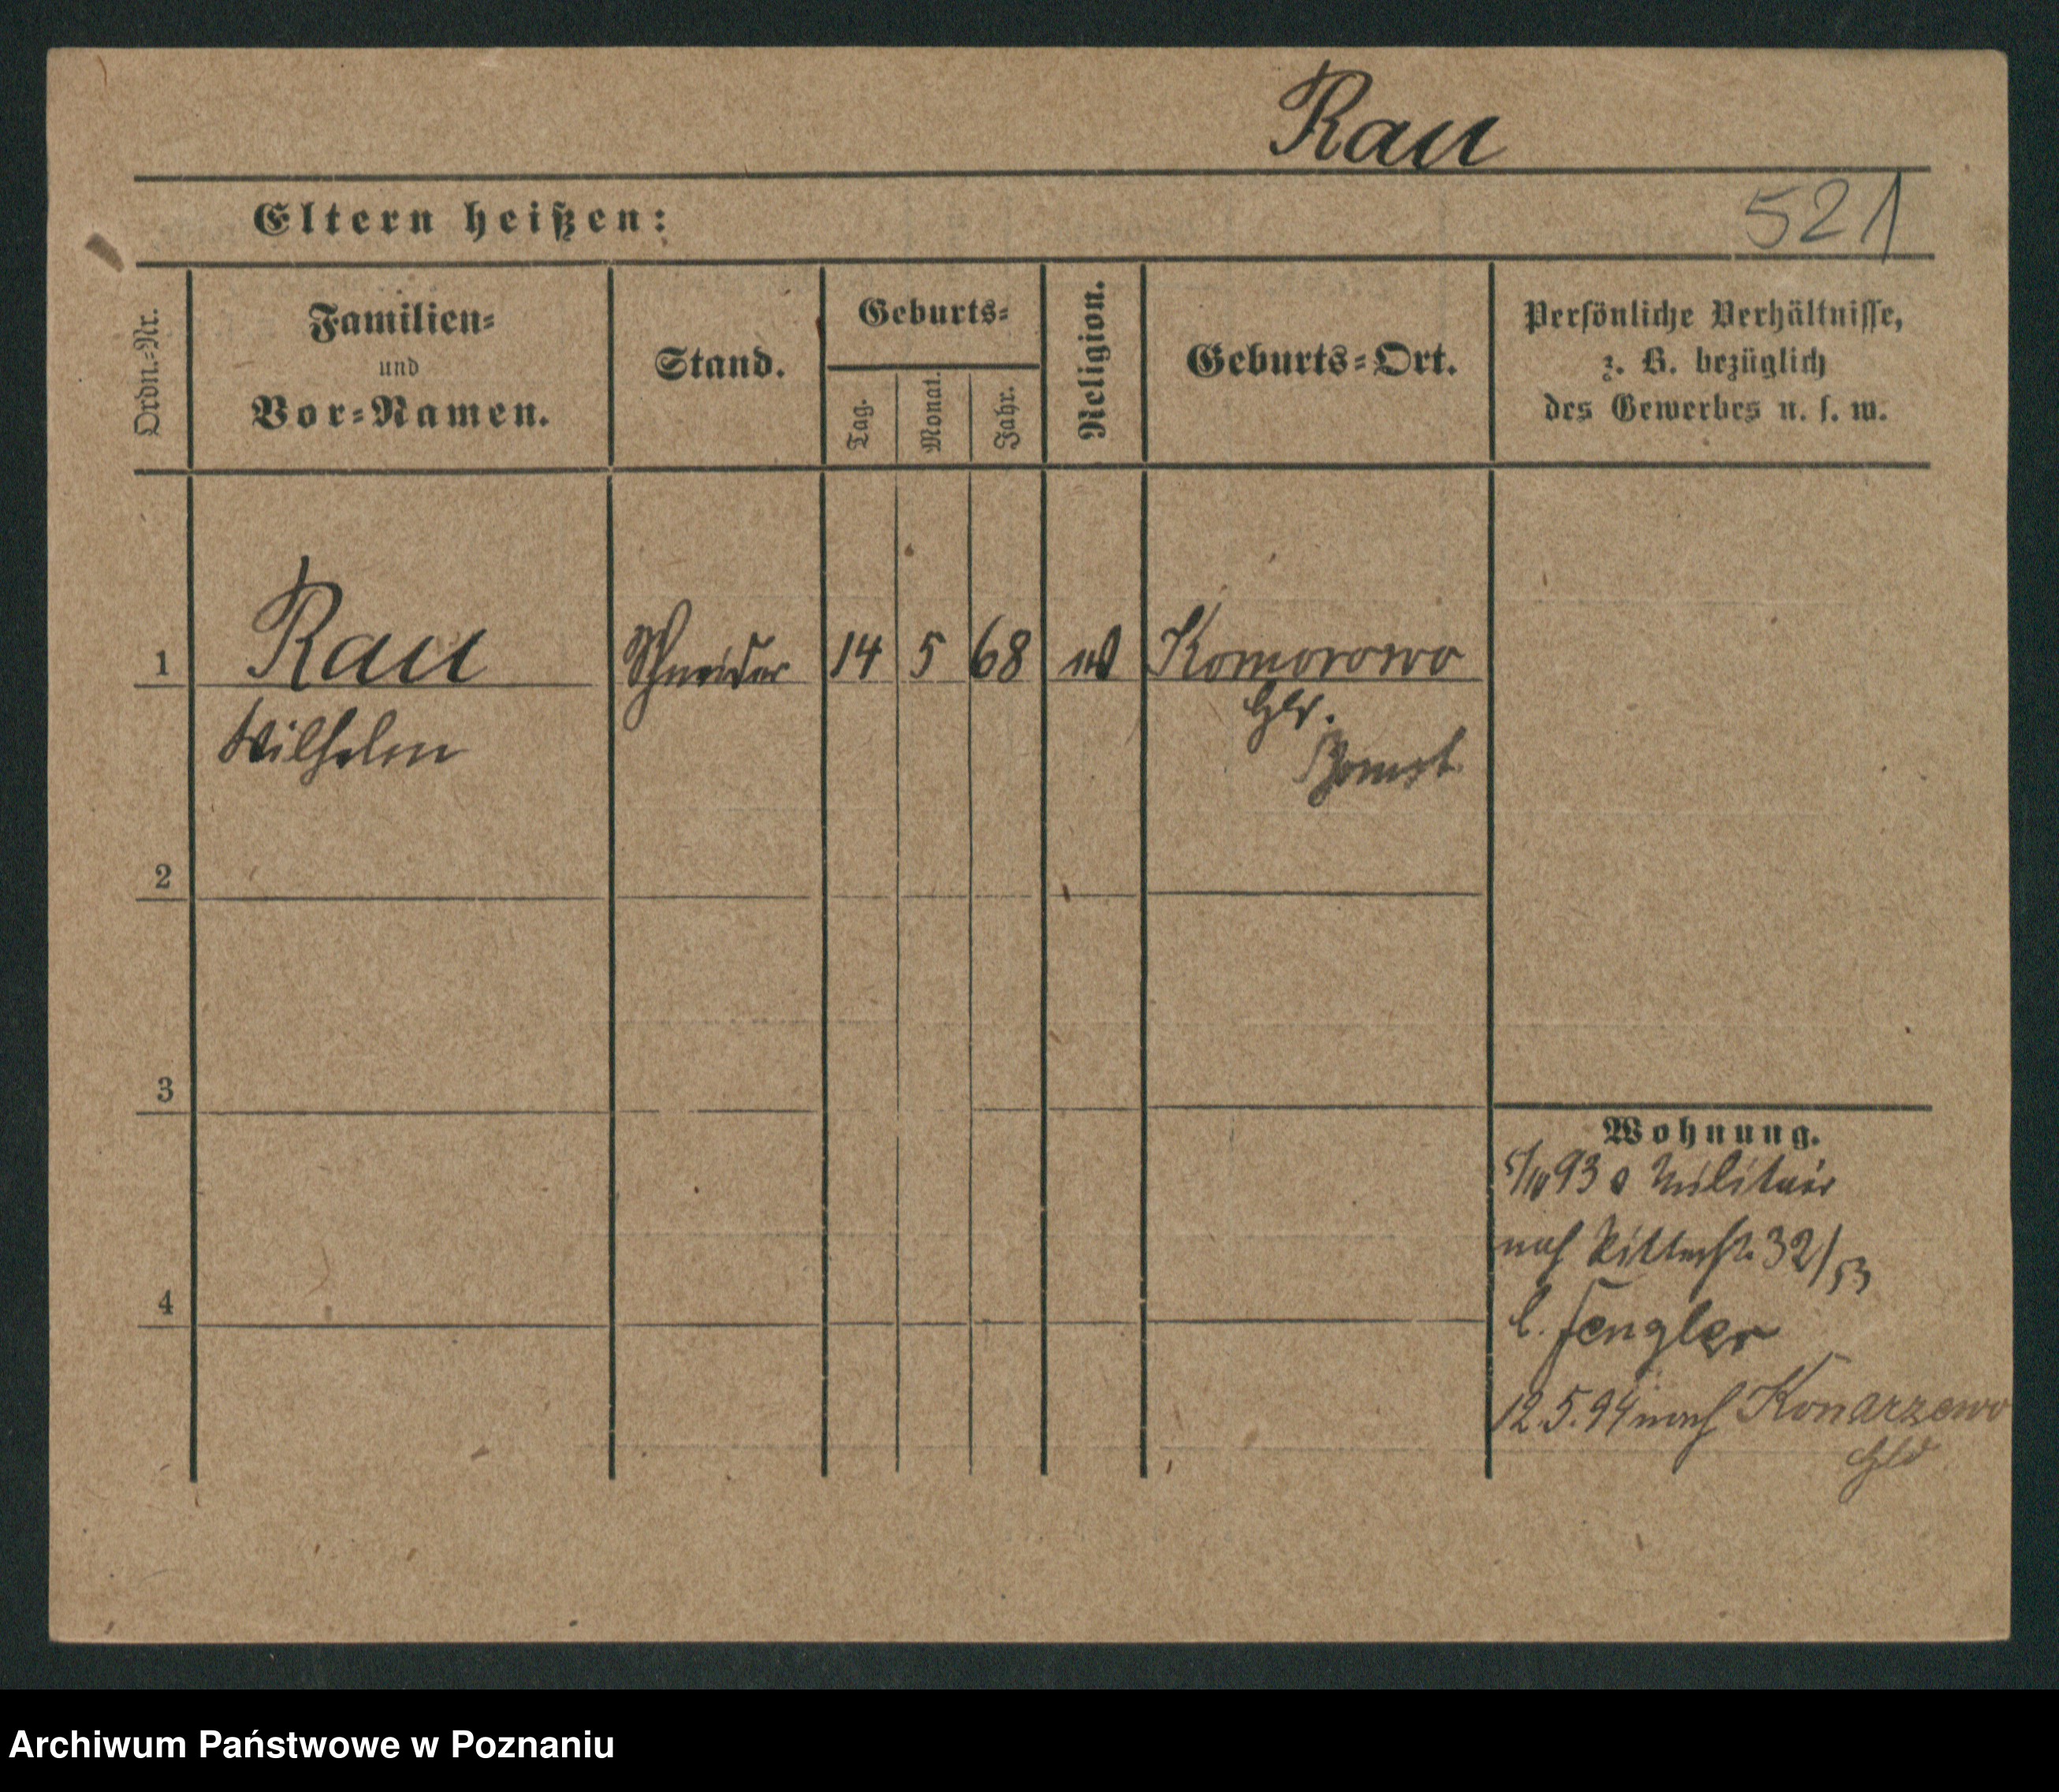 Rau
521
Eltern heißen:
Ordn.-Nr.
Familien-
und
Vor-Namen.
Stand.
Geburts-
Tag.
Monat.
Jahr.
Religion.
Geburts-Ort.
Persönliche Verhältnisse,
z. B. bezüglich
des Gewerbes u. s. w.
1 Rau Schneider 14 5 68 Komorowo
Wilhelm
Bomst
2
3
4
Wohnung.
93 Militair
nach Ritterstr. 32/53
b. Fengler
12.5.94 nach Konarzewo
Archiwum Państwowe w Poznaniu